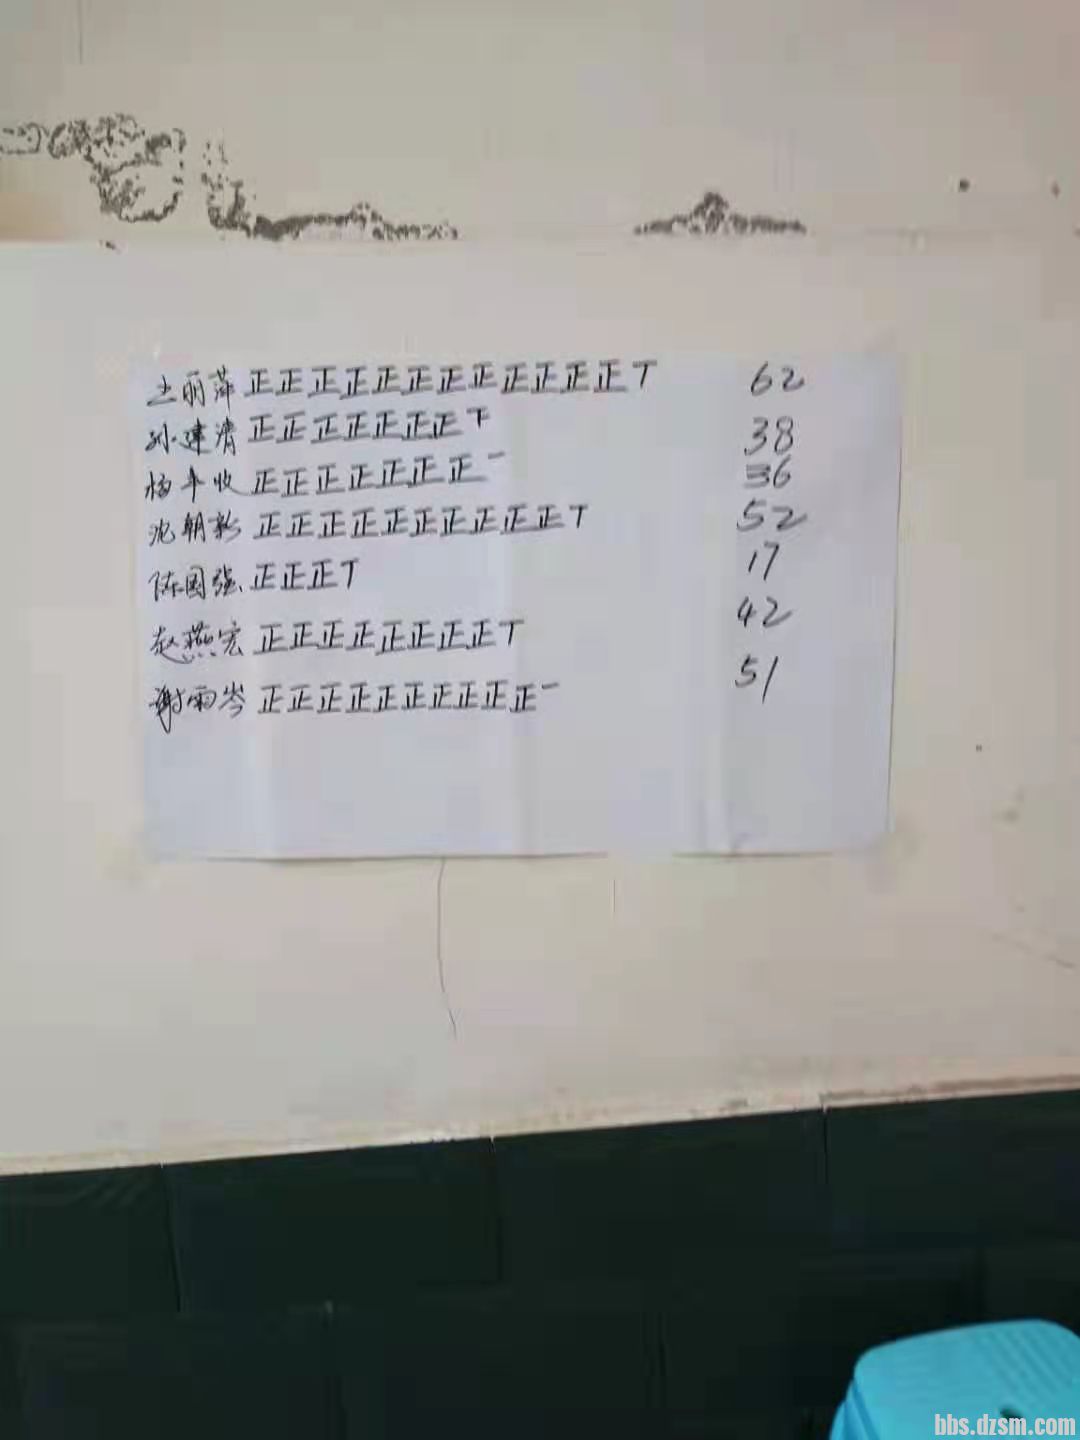 王丽萍 正正正正正正正正正正正正T 62
孙建清 正正正正正正正下 38
杨丰收 正正正正正正正一 36
沈朝彩 正正正正正正正正正正T 52
陈国强 正正正T 17
赵燕宏 正正正正正正正正T 42
谢雨岑 正正正正正正正正正正一 51
bbs.dzsm.com